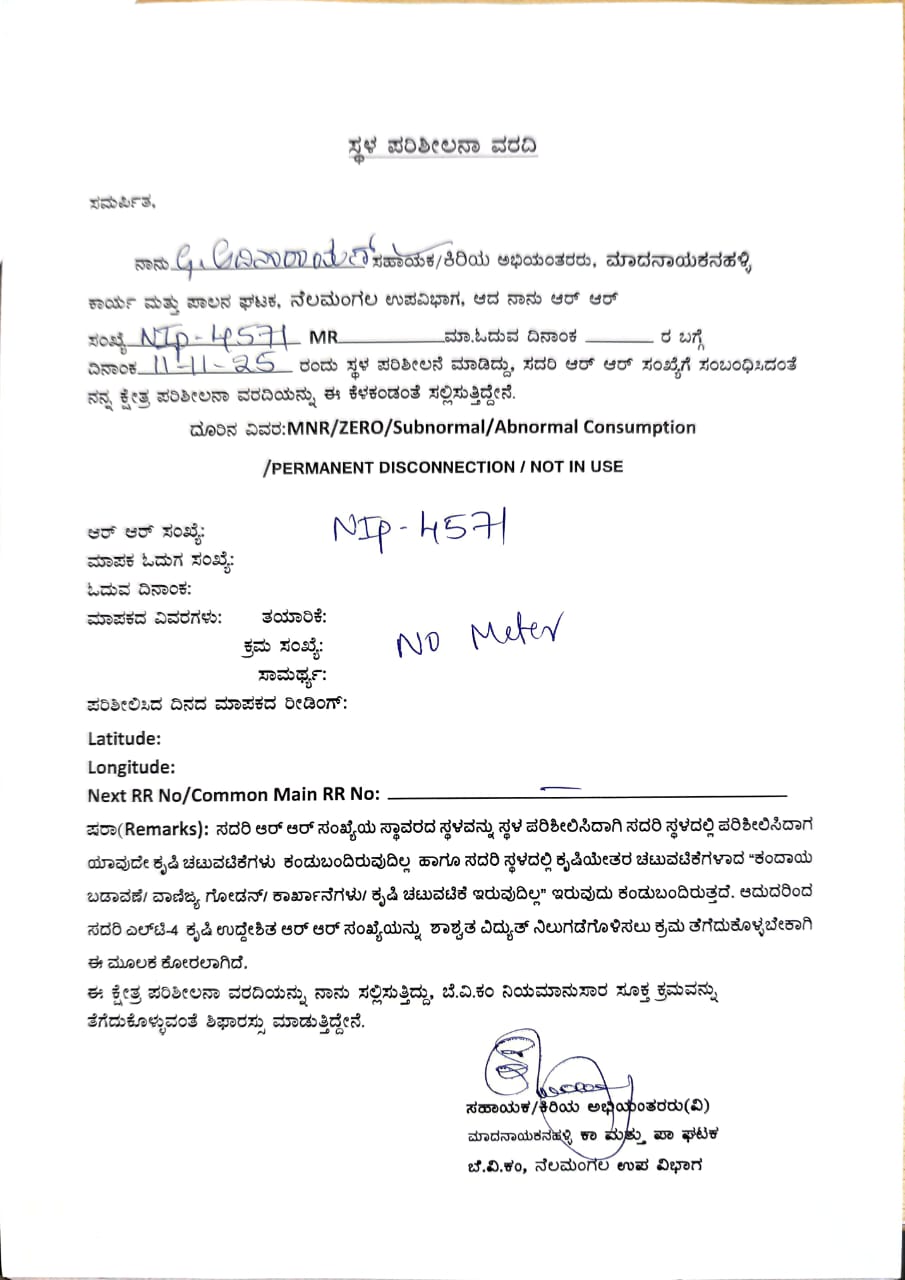 ಸ್ಥಳ ಪರಿಶೀಲನಾ ವರದಿ
ಸಮರ್ಪಿತ,
ನಾನು G. ಆದಿನಾರಾಯಣ್ ಸಹಾಯಕ/ಕಿರಿಯ ಅಭಿಯಂತರರು, ಮಾದನಾಯಕನಹಳ್ಳಿ
ಕಾರ್ಯ ಮತ್ತು ಪಾಲನ ಘಟಕ, ನೆಲಮಂಗಲ ಉಪವಿಭಾಗ, ಆದ ನಾನು ಆರ್ ಆರ್
ಸಂಖ್ಯೆ NIp-4571 MR__________ಮಾ.ಓದುವ ದಿನಾಂಕ ______ ರ ಬಗ್ಗೆ
ದಿನಾಂಕ 11-11-25 ರಂದು ಸ್ಥಳ ಪರಿಶೀಲನೆ ಮಾಡಿದ್ದು, ಸದರಿ ಆರ್ ಆರ್ ಸಂಖ್ಯೆಗೆ ಸಂಬಂಧಿಸಿದಂತೆ
ನನ್ನ ಕ್ಷೇತ್ರ ಪರಿಶೀಲನಾ ವರದಿಯನ್ನು ಈ ಕೆಳಕಂಡಂತೆ ಸಲ್ಲಿಸುತ್ತಿದ್ದೇನೆ.
ದೂರಿನ ವಿವರ:MNR/ZERO/Subnormal/Abnormal Consumption
/PERMANENT DISCONNECTION / NOT IN USE
ಆರ್ ಆರ್ ಸಂಖ್ಯೆ: NIp-4571
ಮಾಪಕ ಓದುಗ ಸಂಖ್ಯೆ:
ಓದುವ ದಿನಾಂಕ:
ಮಾಪಕದ ವಿವರಗಳು: ತಯಾರಿಕೆ:
ಕ್ರಮ ಸಂಖ್ಯೆ: NO Meter
ಸಾಮರ್ಥ್ಯ:
ಪರಿಶೀಲಿಸಿದ ದಿನದ ಮಾಪಕದ ರೀಡಿಂಗ್:
Latitude:
Longitude:
Next RR No/Common Main RR No: —
ಷರಾ(Remarks): ಸದರಿ ಆರ್ ಆರ್ ಸಂಖ್ಯೆಯ ಸ್ಥಾವರದ ಸ್ಥಳವನ್ನು ಸ್ಥಳ ಪರಿಶೀಲಿಸಿದಾಗಿ ಸದರಿ ಸ್ಥಳದಲ್ಲಿ ಪರಿಶೀಲಿಸಿದಾಗ
ಯಾವುದೇ ಕೃಷಿ ಚಟುವಟಿಕೆಗಳು ಕಂಡುಬಂದಿರುವುದಿಲ್ಲ ಹಾಗೂ ಸದರಿ ಸ್ಥಳದಲ್ಲಿ ಕೃಷಿಯೇತರ ಚಟುವಟಿಕೆಗಳಾದ "ಕಂದಾಯ
ಬಡಾವಣೆ/ ವಾಣಿಜ್ಯ ಗೋಡನ್/ ಕಾರ್ಖಾನೆಗಳು/ ಕೃಷಿ ಚಟುವಟಿಕೆ ಇರುವುದಿಲ್ಲ" ಇರುವುದು ಕಂಡುಬಂದಿರುತ್ತದೆ. ಆದುದರಿಂದ
ಸದರಿ ಎಲ್‌ಟಿ-4 ಕೃಷಿ ಉದ್ದೇಶಿತ ಆರ್ ಆರ್ ಸಂಖ್ಯೆಯನ್ನು ಶಾಶ್ವತ ವಿದ್ಯುತ್ ನಿಲುಗಡೆಗೊಳಿಸಲು ಕ್ರಮ ತೆಗೆದುಕೊಳ್ಳಬೇಕಾಗಿ
ಈ ಮೂಲಕ ಕೋರಲಾಗಿದೆ.
ಈ ಕ್ಷೇತ್ರ ಪರಿಶೀಲನಾ ವರದಿಯನ್ನು ನಾನು ಸಲ್ಲಿಸುತ್ತಿದ್ದು, ಬೆ.ವಿ.ಕಂ ನಿಯಮಾನುಸಾರ ಸೂಕ್ತ ಕ್ರಮವನ್ನು
ತೆಗೆದುಕೊಳ್ಳುವಂತೆ ಶಿಫಾರಸ್ಸು ಮಾಡುತ್ತಿದ್ದೇನೆ.
ಸಹಾಯಕ/ಕಿರಿಯ ಅಭಿಯಂತರರು(ವಿ)
ಮಾದನಾಯಕನಹಳ್ಳಿ ಕಾ ಮತ್ತು ಪಾ ಘಟಕ
ಬೆ.ವಿ.ಕಂ, ನೆಲಮಂಗಲ ಉಪ ವಿಭಾಗ